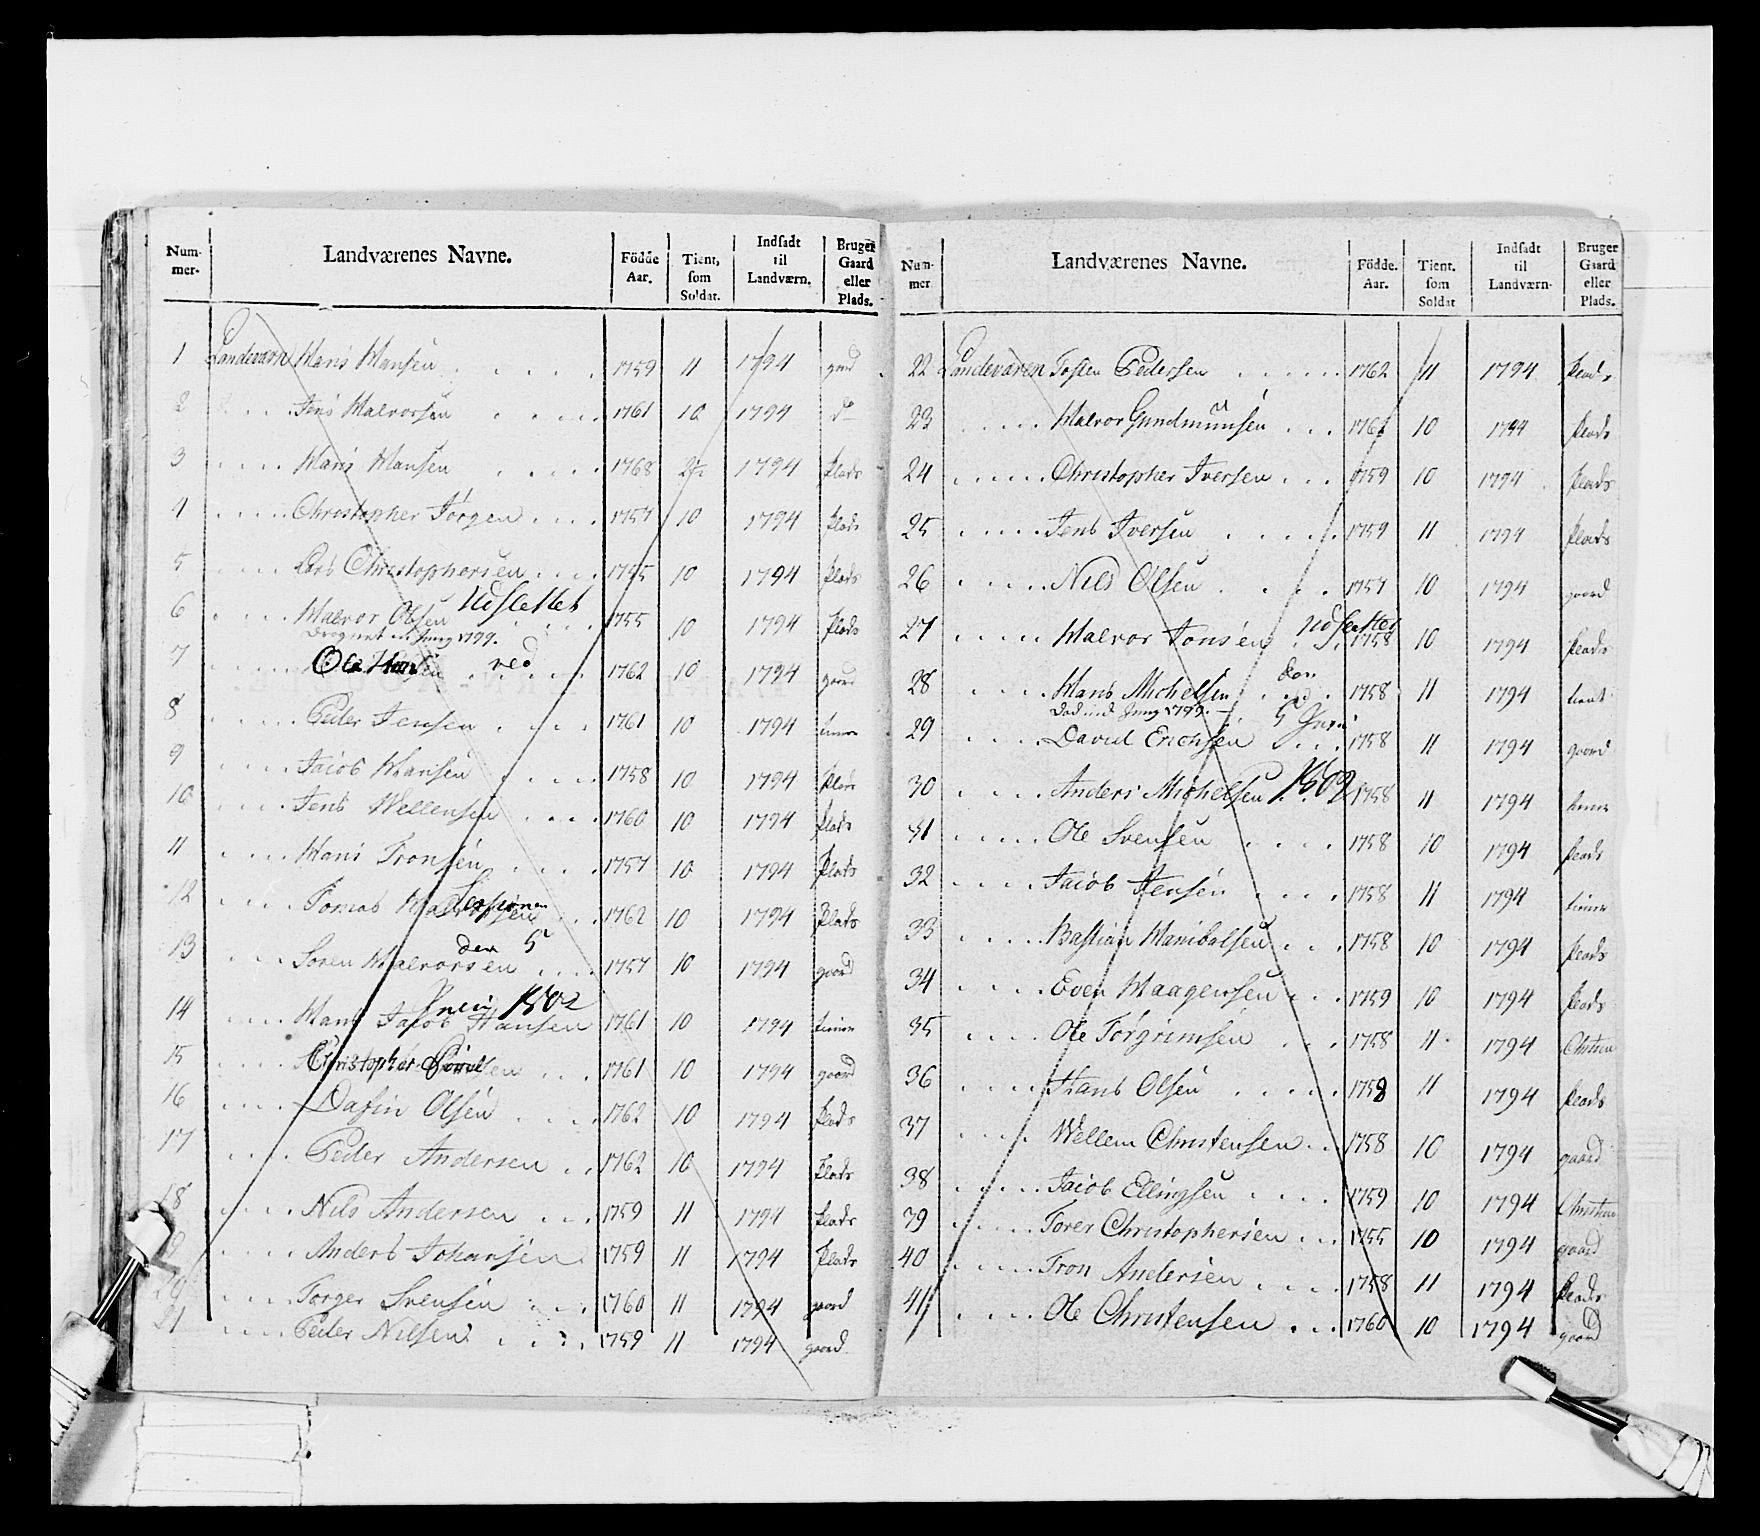 Num-mer. Landværenes Navne. Födde Aar. Tient, som Soldat. Indsadt til Landværn. Bruger Gaard eller Plads.
1 Landeværn Hans Hansen . . . . . 1759 11 1794 gaard
2 . . . . Jens Halvorsen . . . . . 1761 10 1794 do
3 . . . . Hans Hansen . . . . . 1768 1794 Plads
4 . . . . Christopher Jörgen . . . . 1757 10 1794 Plads
5 . . . . Lars Christophersen . . . . 1755 10 1794 Plads
6 . . . . Halvor Olsen Udslettet 1755 10 1794 Plads
Jung 1799.
7 . . . . Ole Hansen ved . . . 1762 10 1794 gaard
8 . . . . Peder Jensen . . . . 1761 10 1794
9 . . . . Jacob Hansen . . . . . 1758 10 1794 Plads
10 . . . . Jens Wellensen . . . . 1760 10 1794 Plads
11 . . . . Hans Tronsen . . . . 1757 10 1794 Plads
12 . . . . Tomas Sessionen . . 1762 10 1794 Plads
13 . . . Sören Halvorsen den 5 . . . . 1757 10 1794 gaard
14 . . . . Hans Jacob Hansen Junii 1802 1761 10 1794
15 . . . . Christopher . . . 1761 10 1794 gaard
16 . . . . Dafin Olsen . . . . 1762 10 1794 Plads
17 . . . . Peder Andersen . . 1762 10 1794 Plads
18 . . . . Nils Andersen . . . 1759 11 1794 Plads
. . . . Anders Johansen 1759 11 1794 Plads
20 . . . . Torger Svensen . . . 1760 11 1794 gaard
21 . . . . Peder Nilsen . . . . . 1759 11 1794 gaard
Num-mer Landværenes Navne. Födde. Aar. Tient. som Soldat Indsadt til Landværn. Bruger Gaard eller Plads.
22 Landeværen Tosten Pedersen . . . . . . 1762 11 1794 Plads
23 . . . . . Halvor Gundmunsen . . . 1761 10 1794 Plads
24 . . . . . Christopher Iversen . . . 1759 10 1794 Plads
25 . . . . . Jens Iversen . . . . . 1759 11 1794 Plads
26 . . . . Nils Olsen . . . . 1757 10 1794 gaard
27 . . . . Halvor Jonsen Udslettet 1758 10 1794 Plads
28 . . . . Hans Michelsen den 1758 11 1794
Jung 1799.
29 . . . . David Erichsen 5 Junii 1758 11 1794 gaard
30 . . . . Anders Michelsen 1802 1758 11 1794
31 . . . . . Ole Svensen . . . . 1758 10 1794 Plads
32 . . . . Jacob Jensen . . . . 1758 11 1794
33 . . . . . Bastian Hanibalsen . . . 1758 10 1794 Plads
34 . . . . Even Haagensen . . . 1759 10 1794 Plads
35 . . . . Ole Torgrimsen . . . 1758 11 1794
36 . . . . Hans Olsen . . . . . 1758 11 1794 Plads
37 . . . . Wellem Christensen . . 1758 10 1794 gaard
38 . . . . . Jacob Ellingsen . . . . 1759 10 1794
39 . . . . . Torer Christophersen . . . 1755 10 1794 gaard
40 . . . . . Tron Andersen . . . . 1758 11 1794 Plads
41 . . . . Ole Christensen . . . 1760 10 1794 gaard